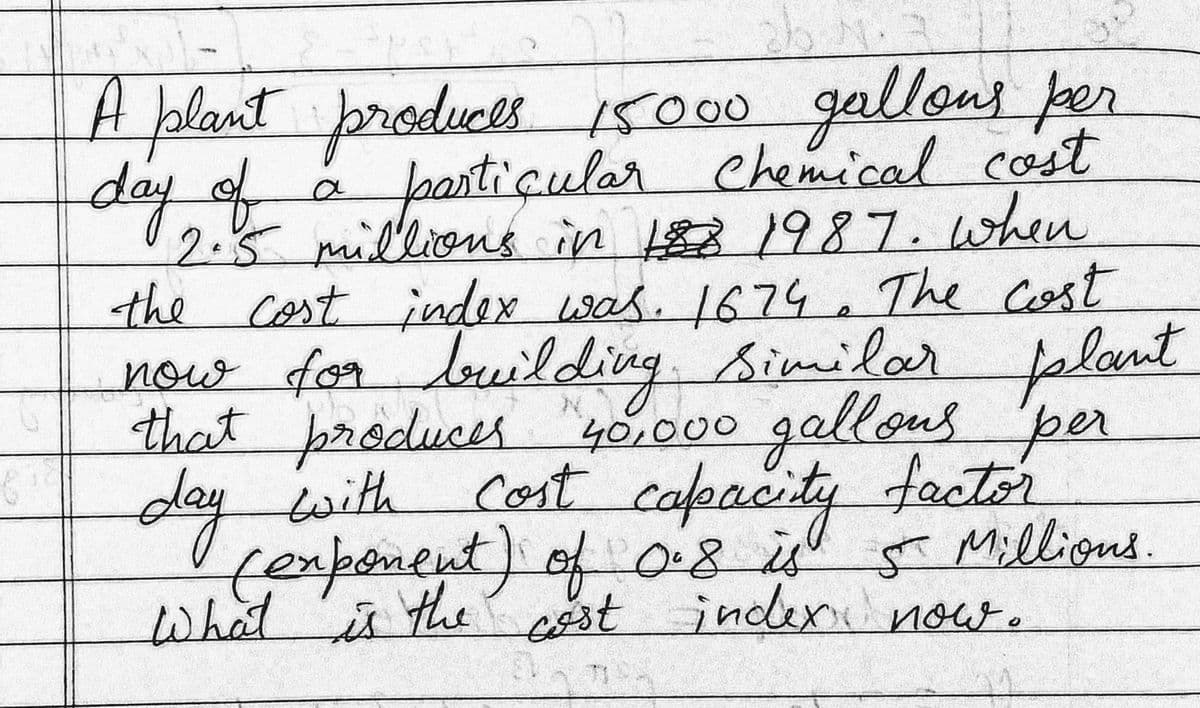 A plant produces 15000 gallons per
day of a particular chemical cost
2.5 millions in 1987. when
the cost index was. 1674. The cost
now for building similar plant
that produces 40,000 gallons per
day with cost capacity factor
(exponent) of 0.8 is 5 Millions.
What is the cost index now.